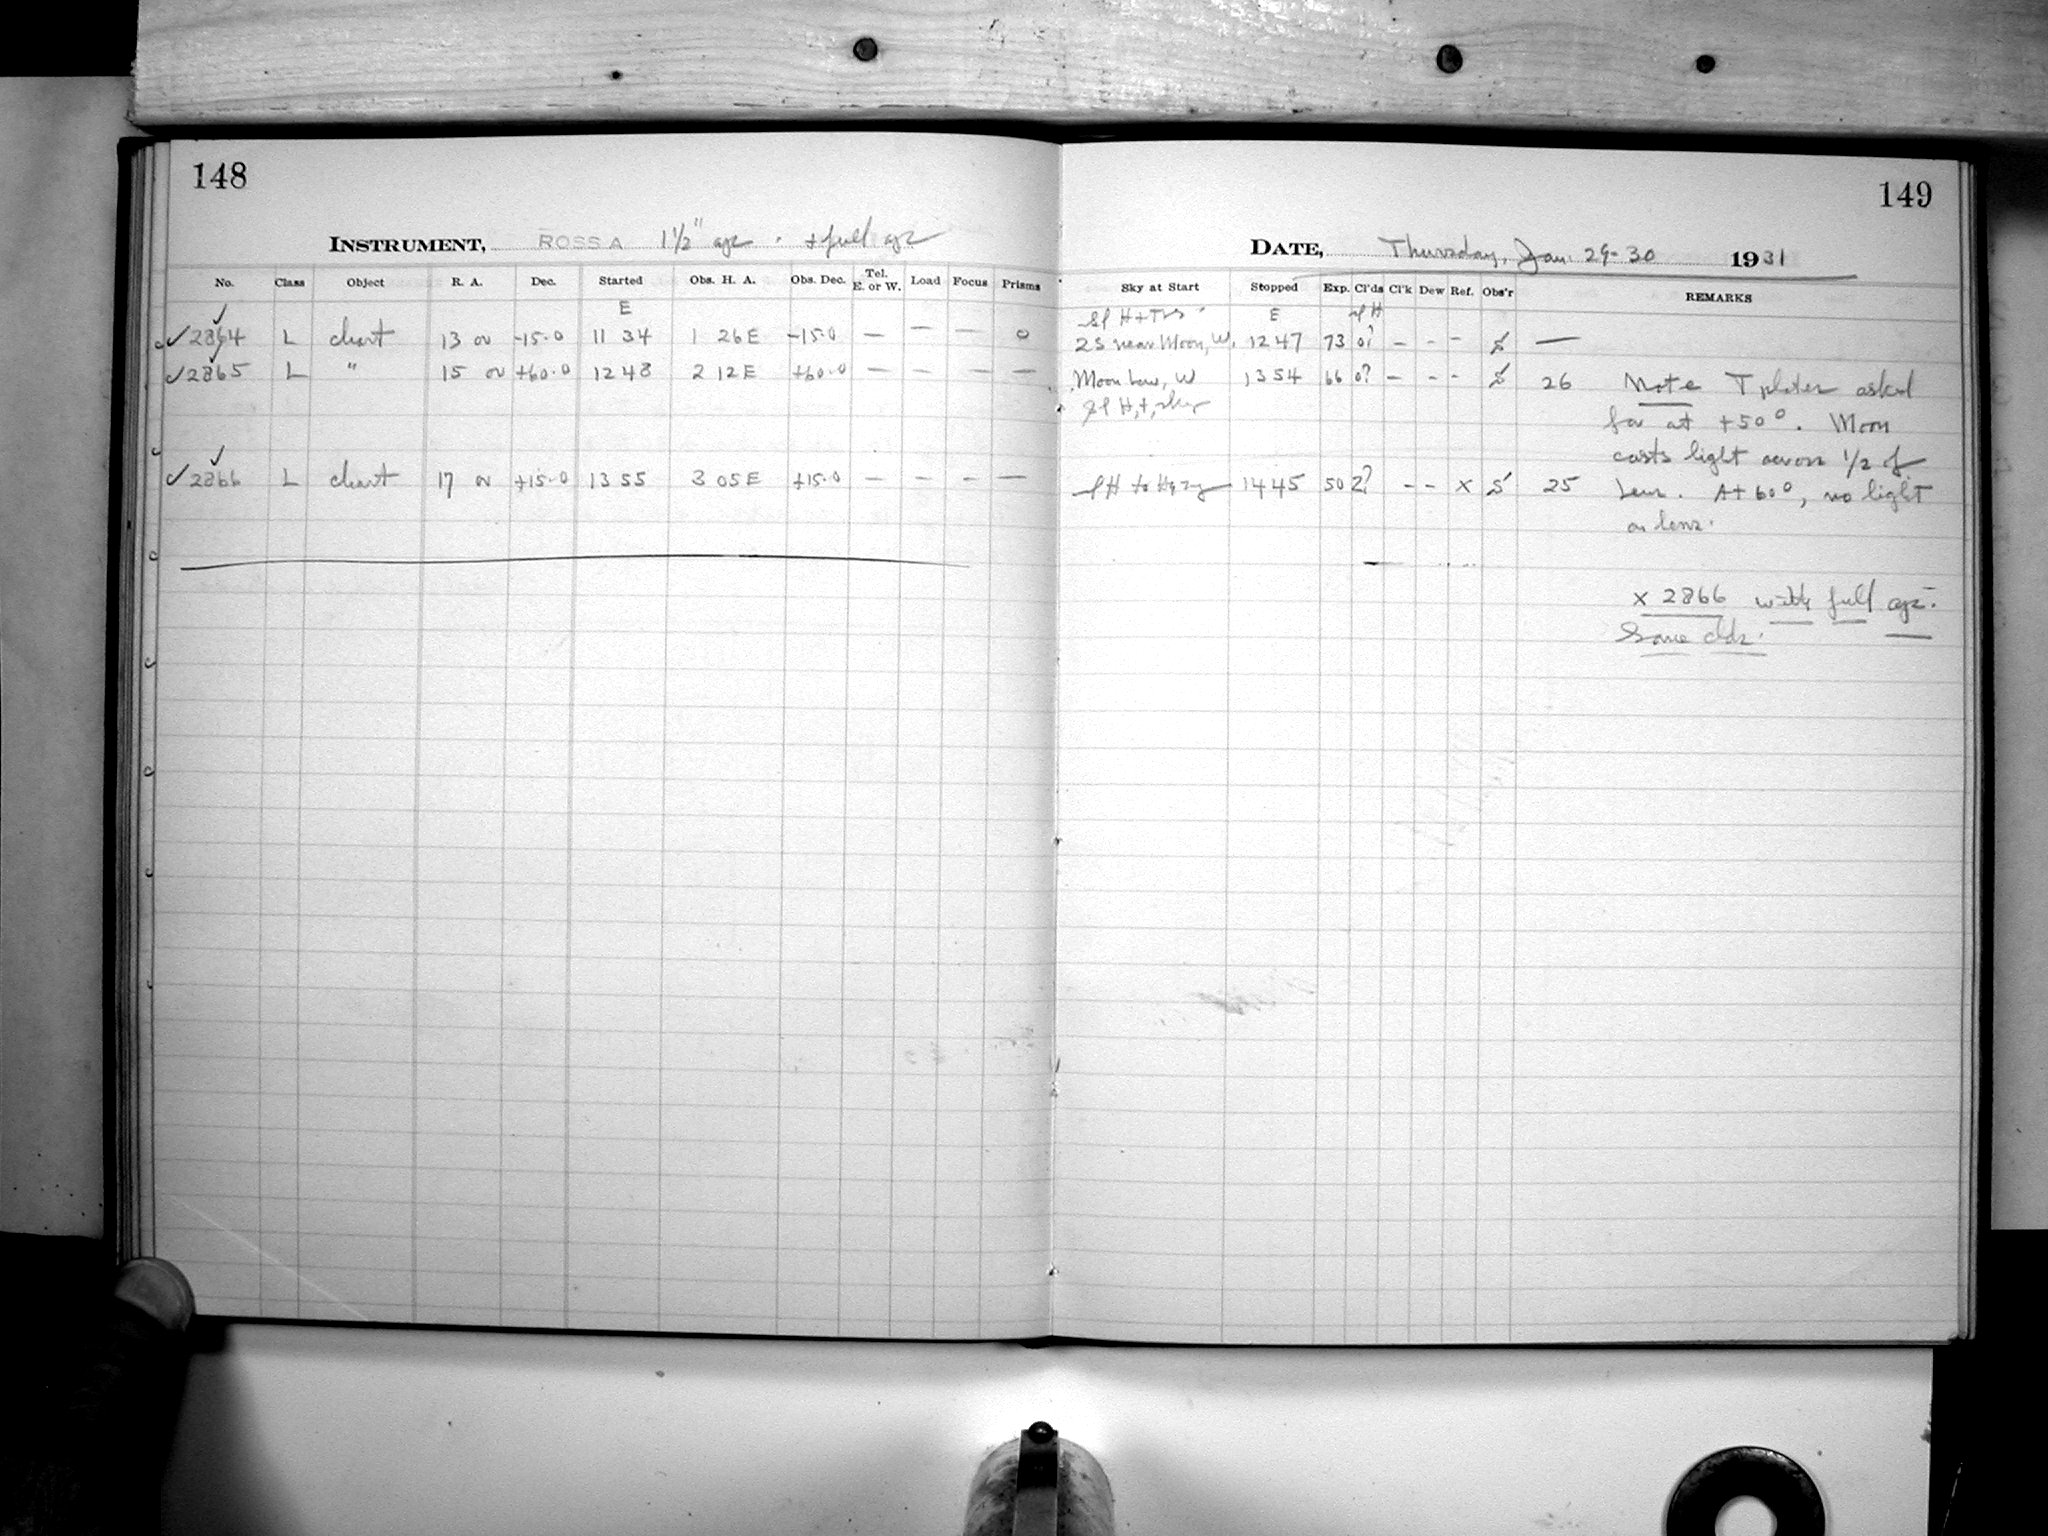 148
INSTRUMENT, ROSS A 1½" ap. + full ap
No. Class Object R. A. Dec. Started Obs. H. A. Obs. Dec. Tel. E. or W. Load Focus Prisms
E
✓2864 L chart 13 00 -15.0 11 34 1 26E -15.0 — — — 0
✓2865 L " 15 00 +60.0 12 48 2 12E +60.0 — — — —
✓2866 L chart 17 00 +15.0 13 55 3 05E +15.0 — — — —
149
DATE, Thursday, Jan. 29-30 1931
Sky at Start Stopped Exp. Cl'ds Cl'k Dew Ref. Obs'r REMARKS
E
2S near Moon, W. 12 47 73 0? — - - —
Moon Low, W 13 54 66 0? — - - 26
14 45 50 2? - - x S 25
Note T plates asked
for at +50°. Moon
casts light across 1/2 of
Lens. At 60°, no light
on lens.
x 2866 with full ap.
Some clds.